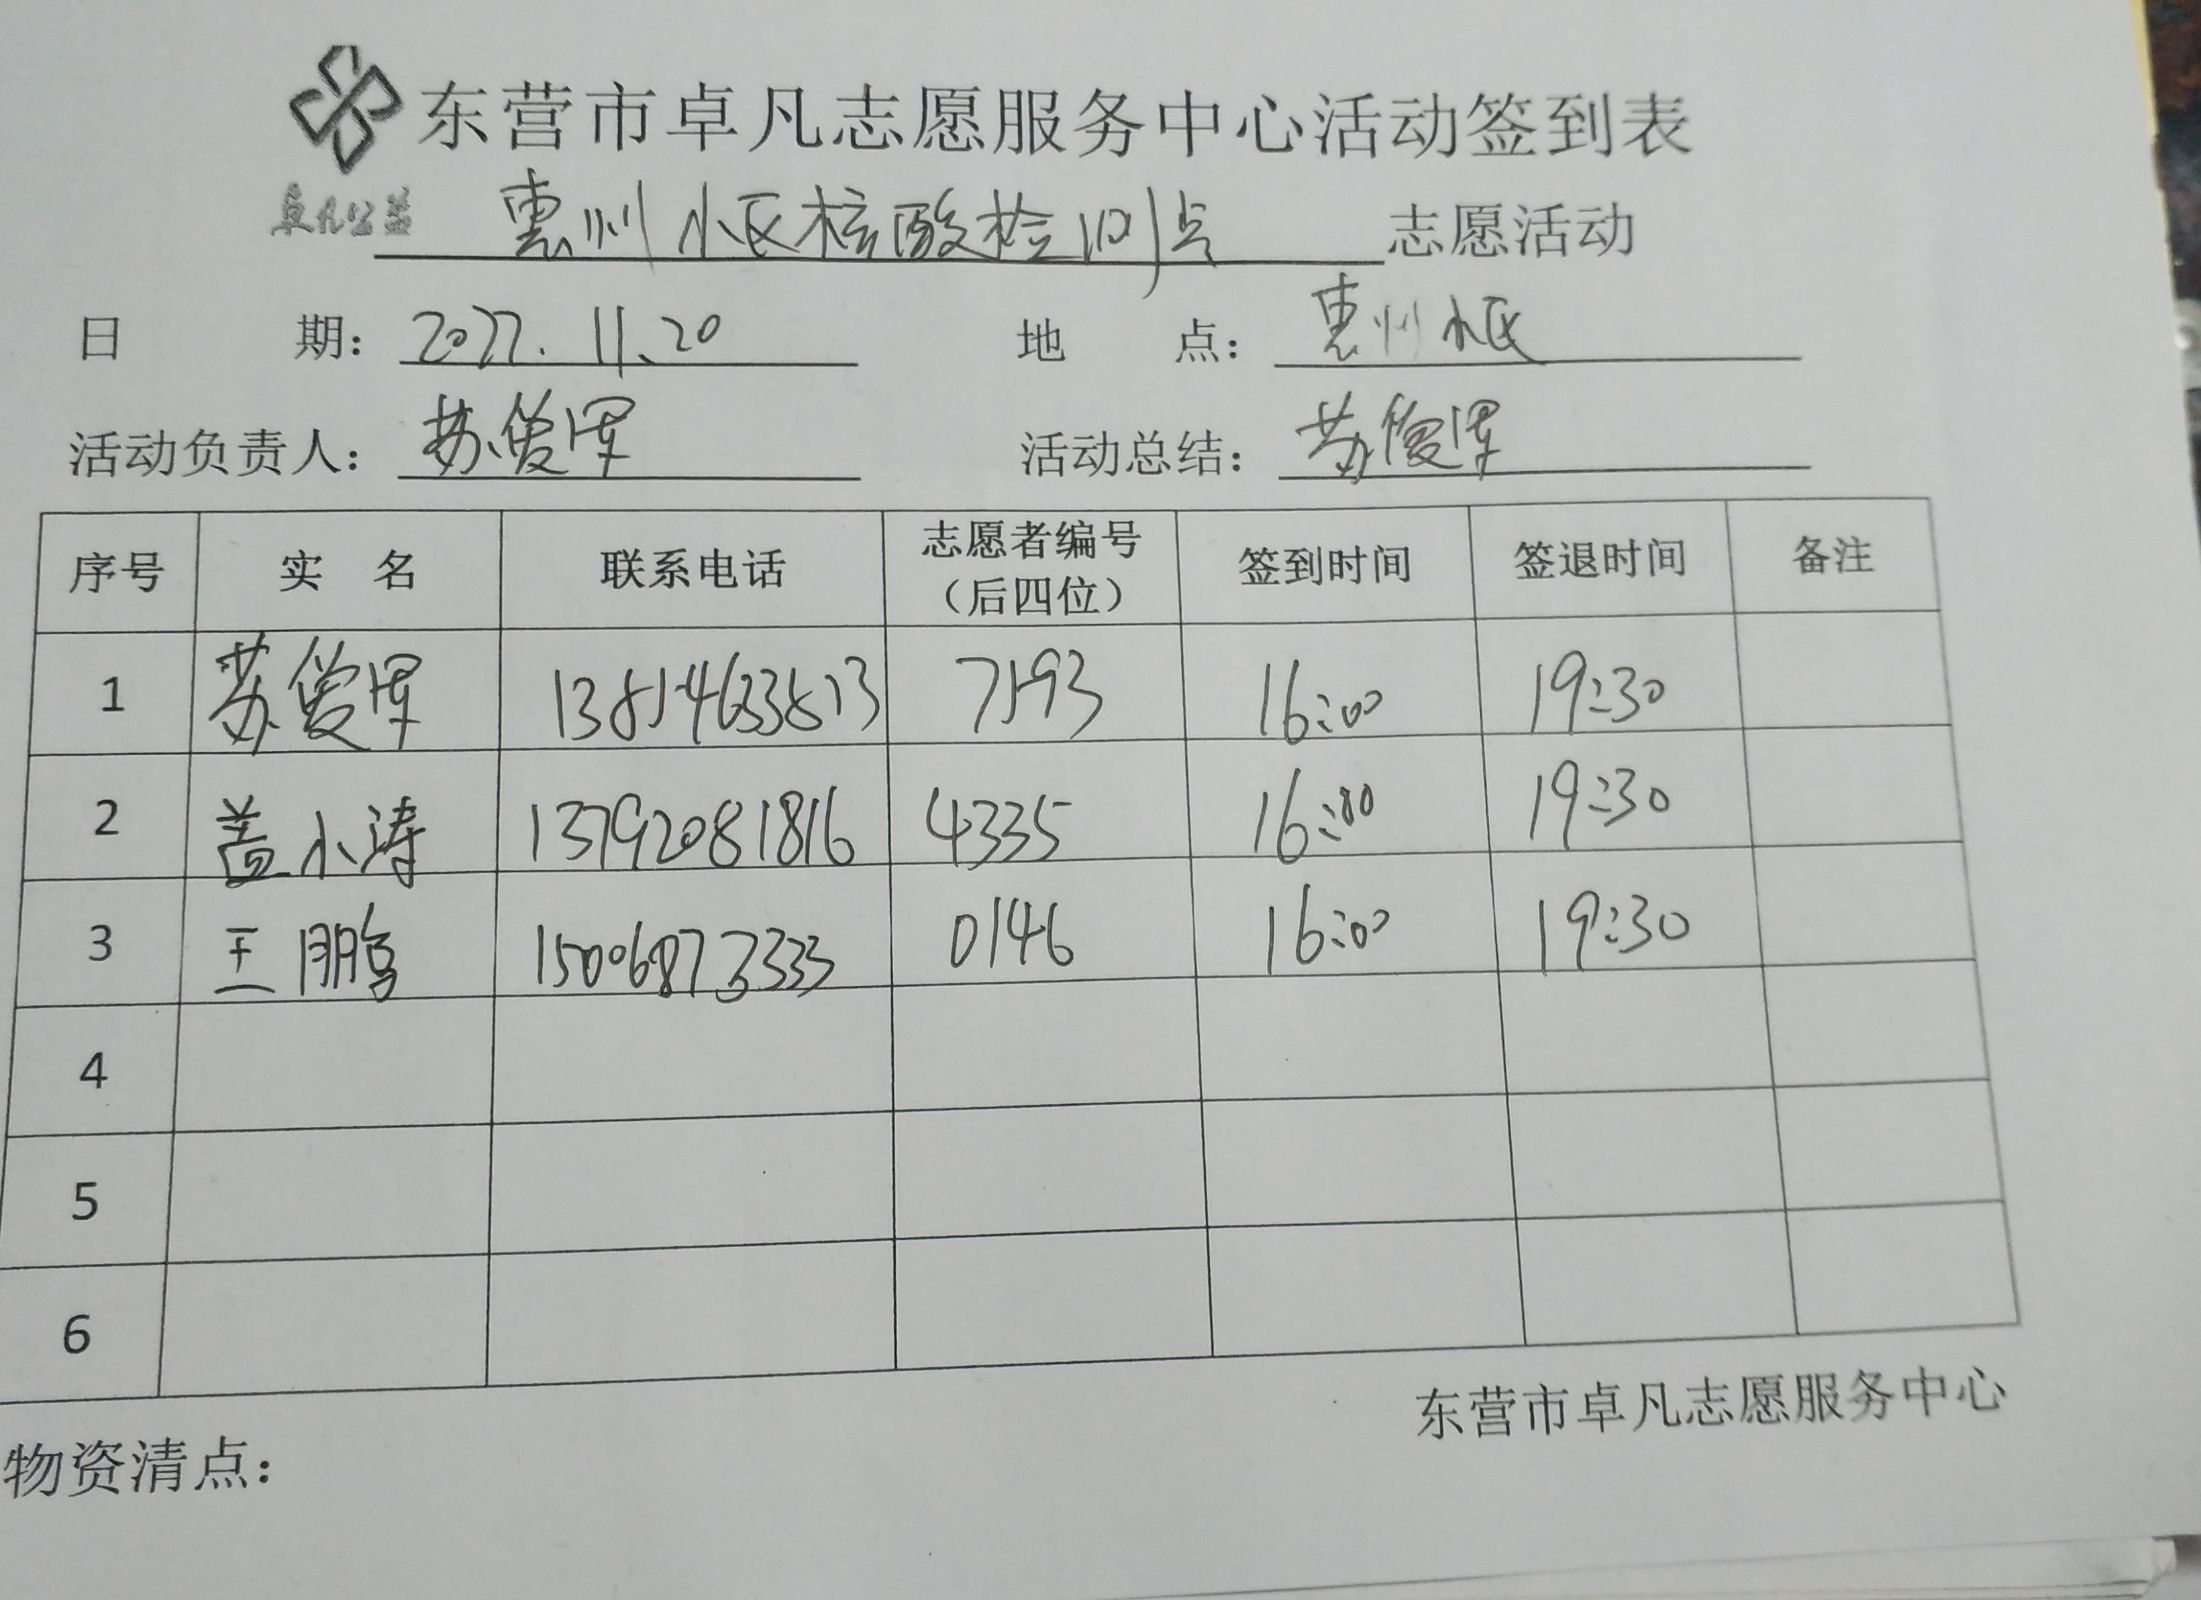 东营市卓凡志愿服务中心活动签到表
卓凡公益 惠州小区核酸检测点 志愿活动
日 期： 2022.11.20 地 点： 惠州小区
活动负责人： 苏俊泽 活动总结： 苏俊泽
序号 实 名 联系电话 志愿者编号（后四位） 签到时间 签退时间 备注
1 苏俊泽 7193 16:00 19:30
2 盖小涛 13792081816 4335 16:00 19:30
3 王鹏 15006873333 0146 16:00 19:30
4
5
6
东营市卓凡志愿服务中心
物资清点：